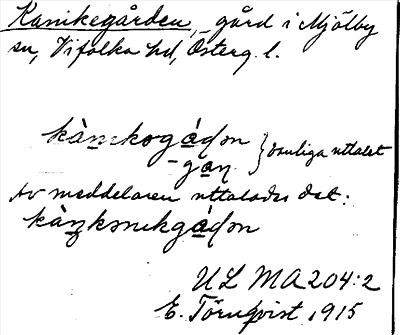 Kanikegården, gård i Mjölby
sn, Vifolka hd, Österg. l.
kànikogádɔn
-gaṇ. } vanliga uttalet
Av meddelaren uttalades det:
kàṇkɔnikgádɔn
UL MA 204:2
E. Törnqvist 1915